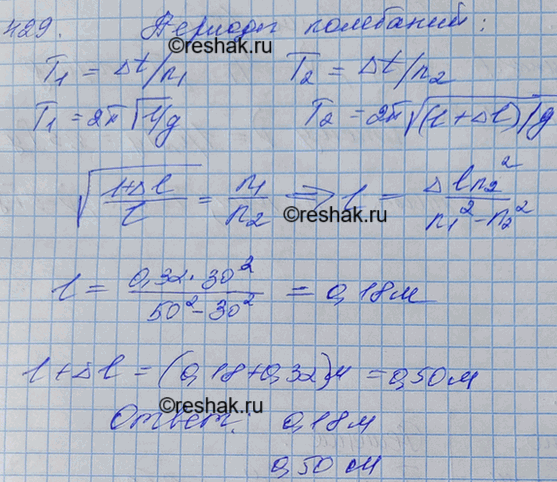 429. Периоды колебаний:
©reshak.ru
T₁ = Δt/n₁ T₂ = Δt/n₂
T₁ = 2π√l/g T₂ = 2π√(l+Δl)/g
√((l+Δl)/l) = n₁/n₂ => l = Δln₂²/(n₁²-n₂²)
©reshak.ru
l = 0,32·30²/(50²-30²) = 0,18м
©reshak.ru
l+Δl = (0,18+0,32)м = 0,50м
©reshak.ru
Ответ: 0,18м
0,50 см